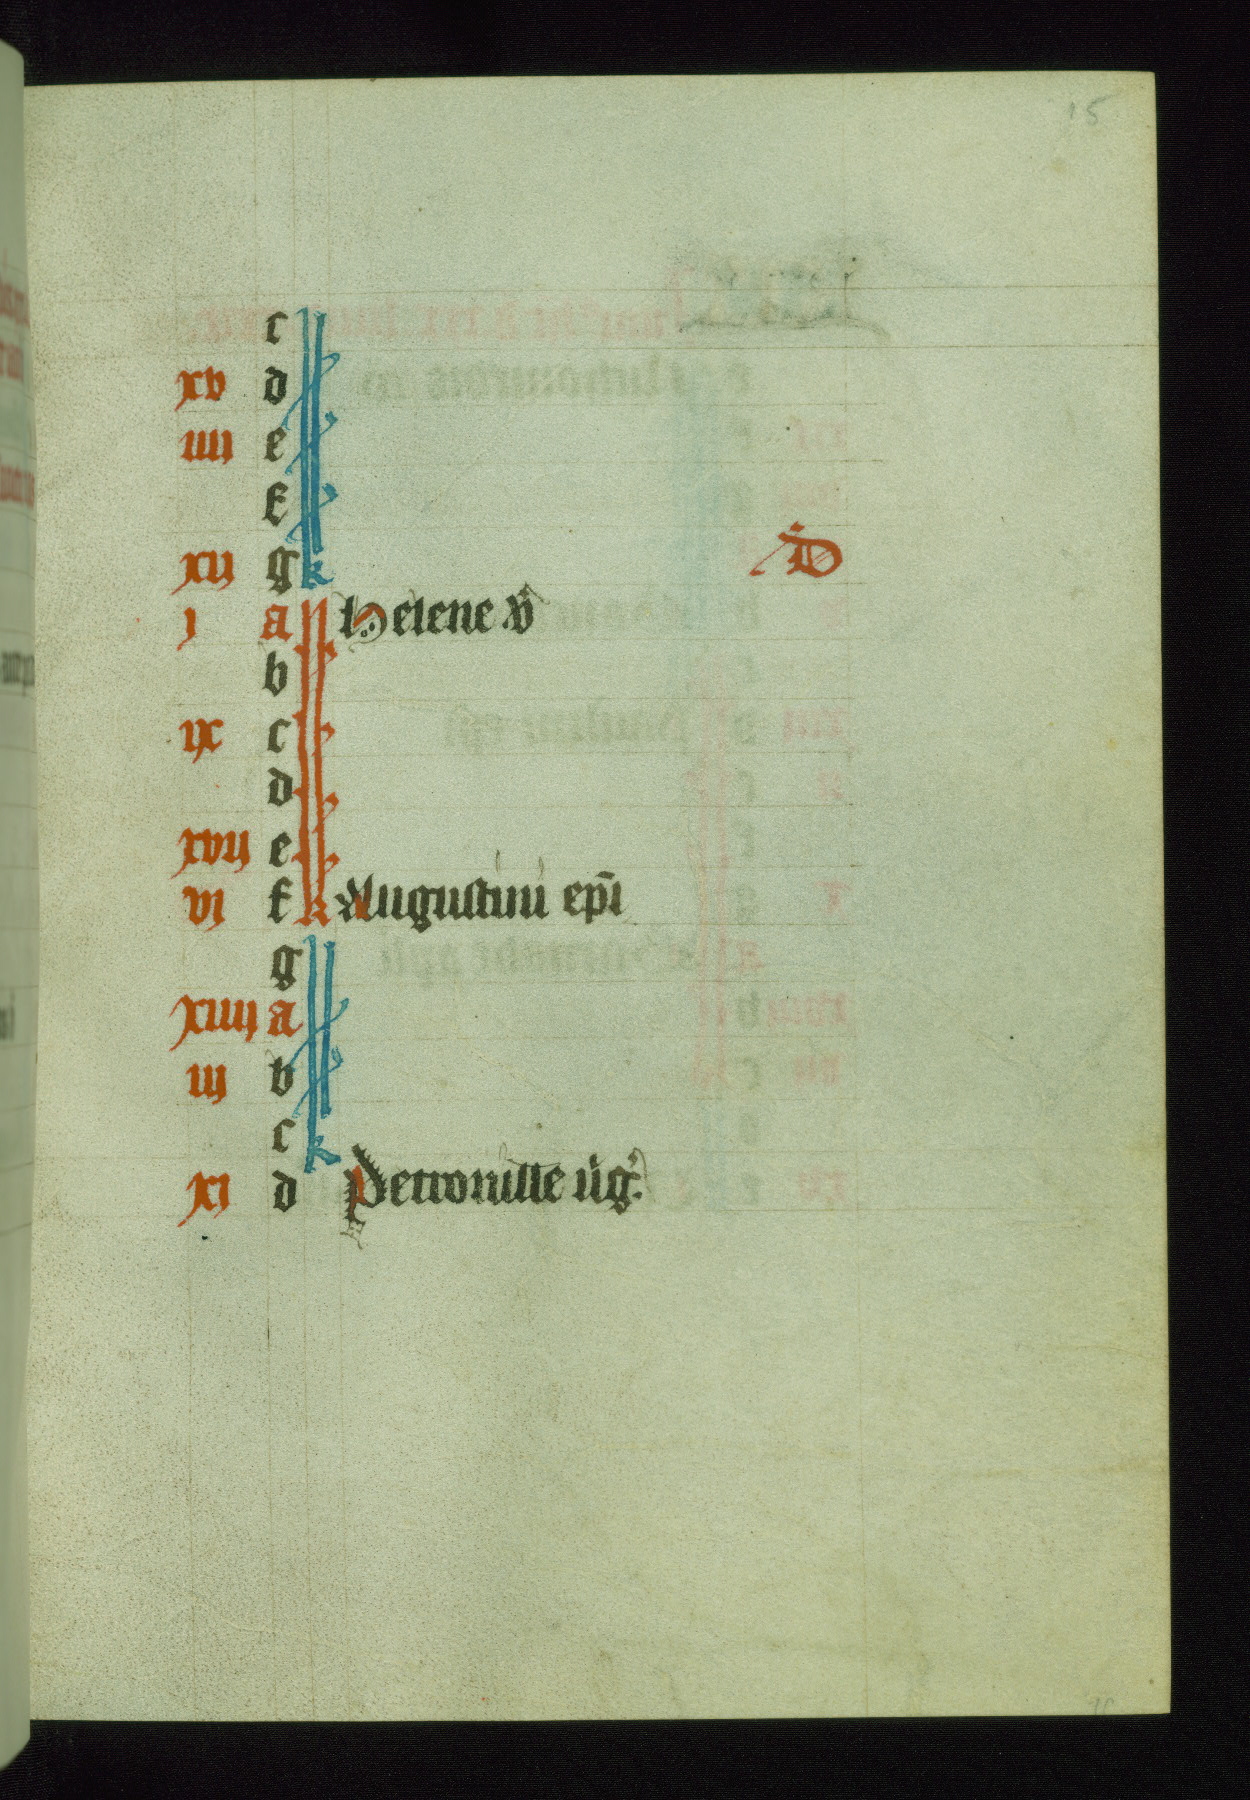 15
c
xv d
iiij e
f
xij g k
D
i a Helene v̄
b
ix c
d
xvij e
vi f k Augustini ep̄i
g
xiiij a
iij b
c k
xi d Petronille v̄ig̾.